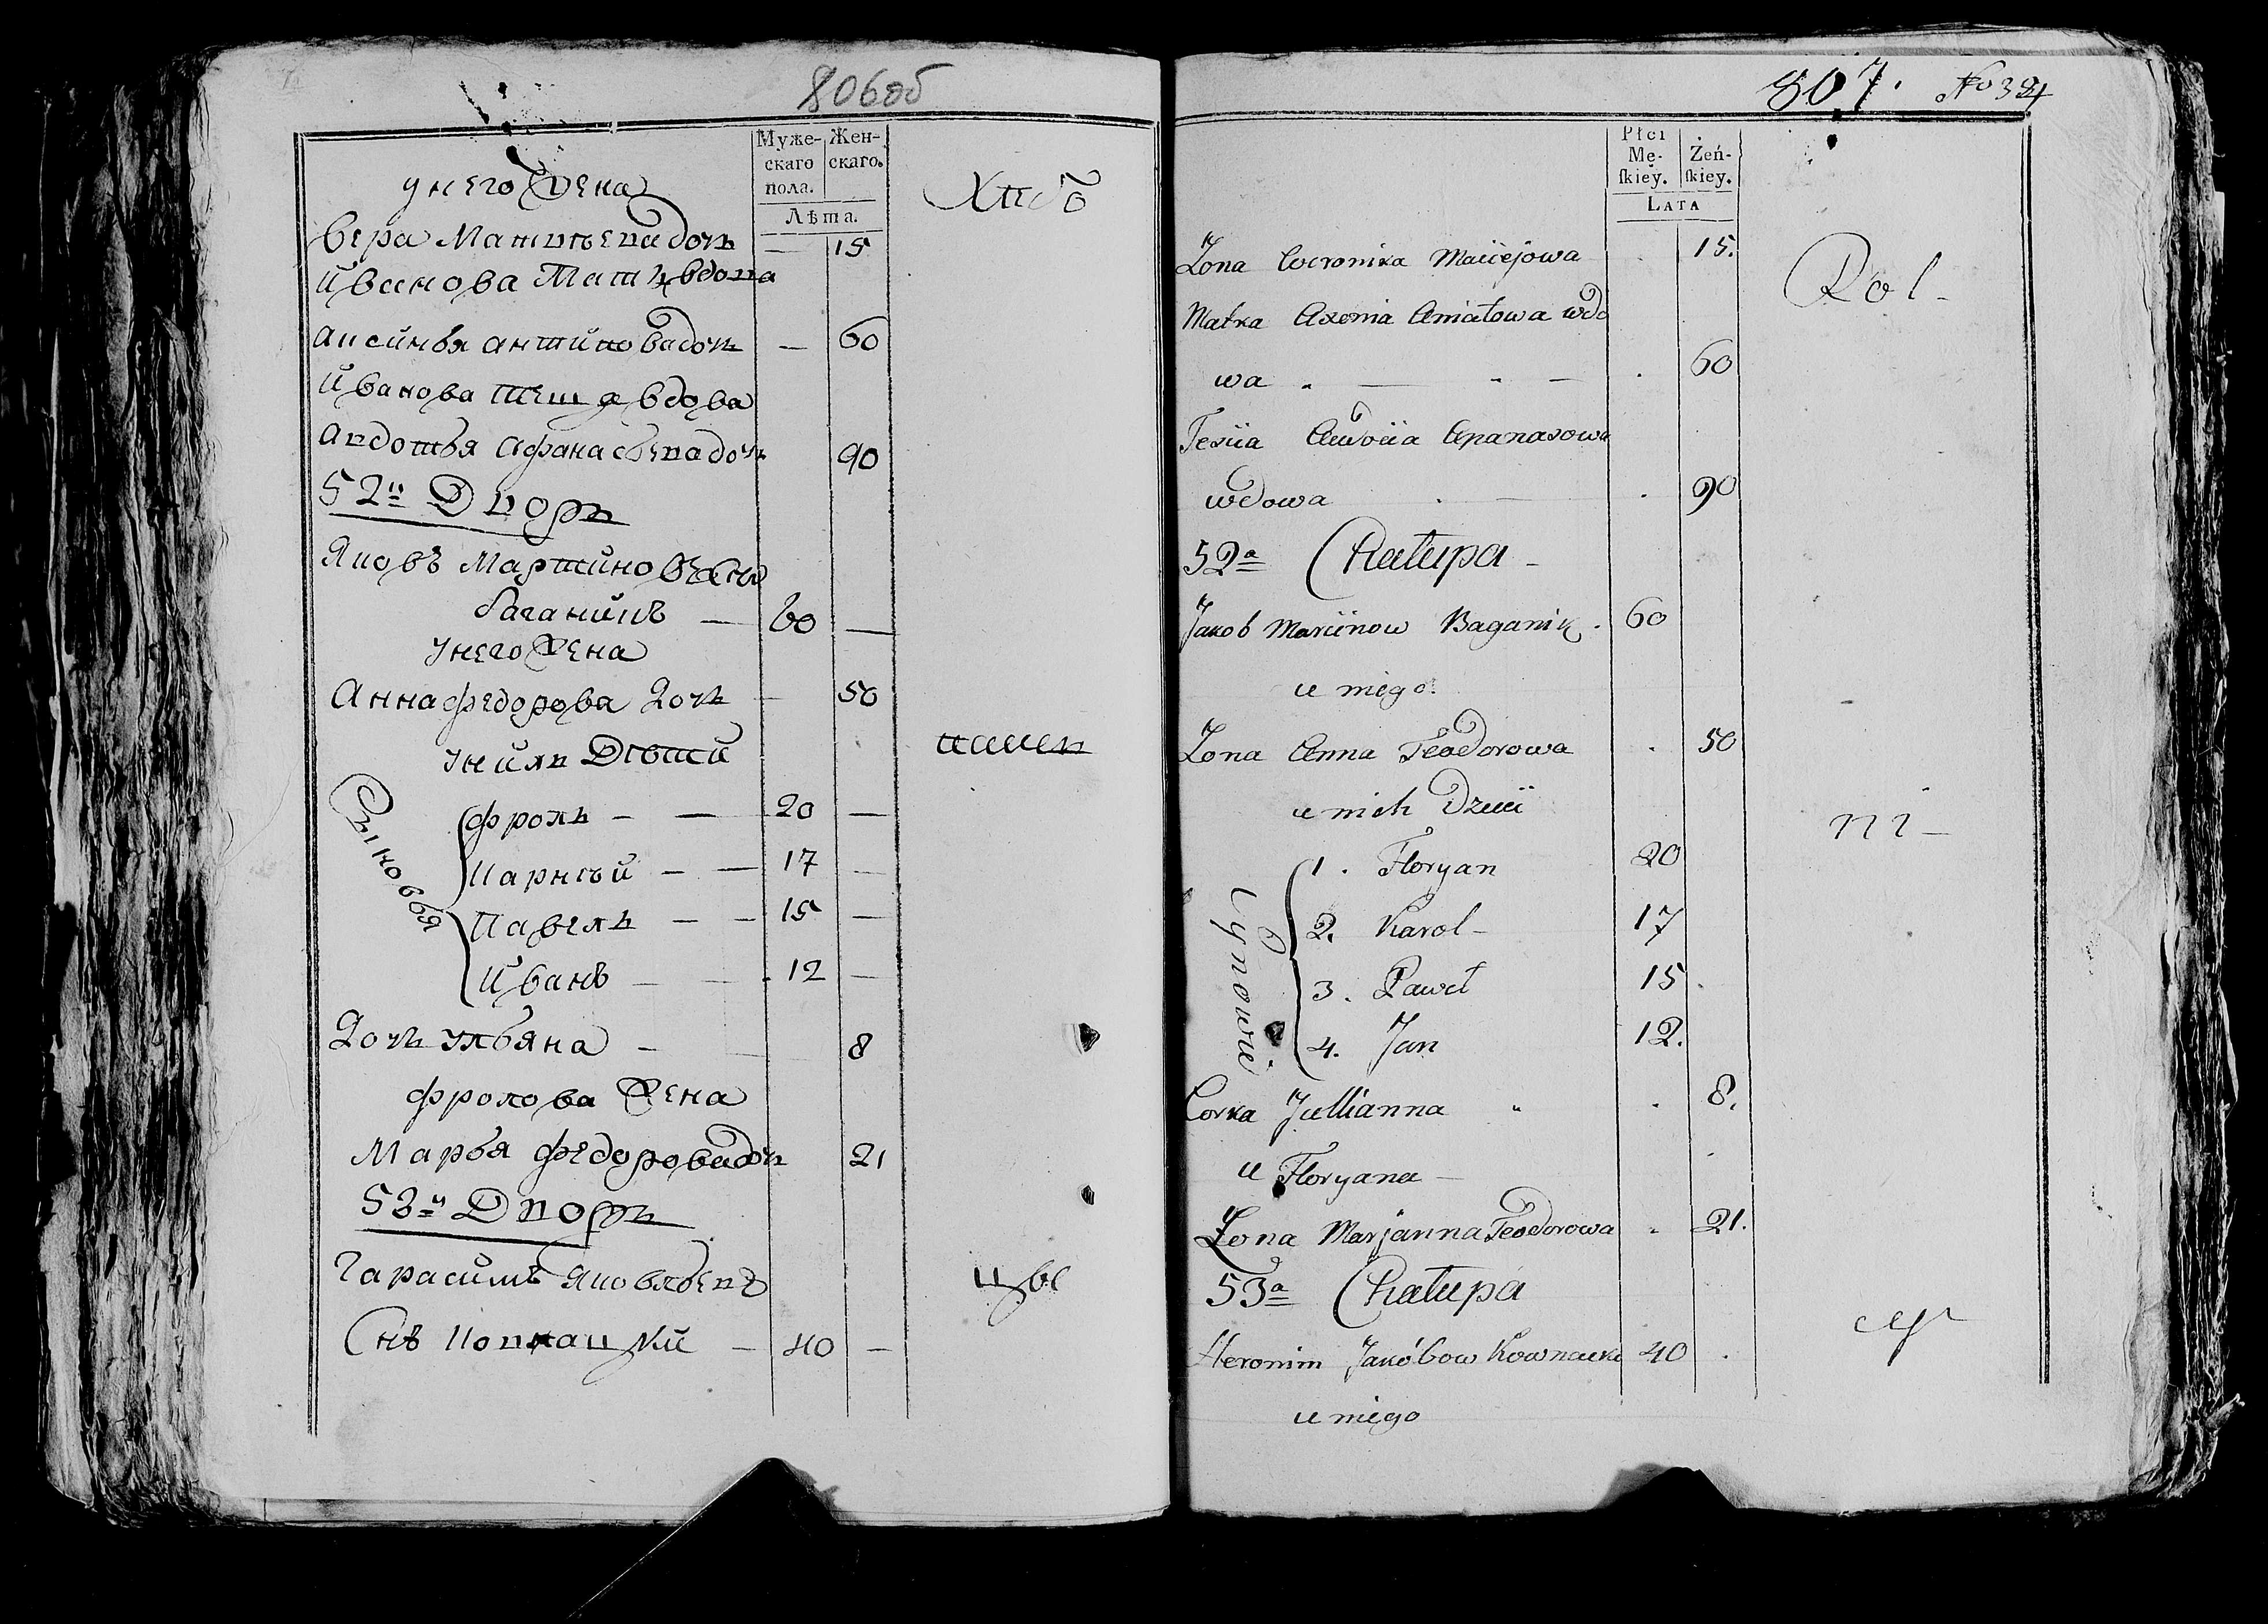 806об
Муже- Жен-
скаго скаго.
пола.
Лѣта.
у него Жена
Хлѣб
Вера Матвѣева дочь — 15
Иванова Мать вдова
Аксинья Антипова дочь — 60
Иванова теща вдова
Авдотья Афанасьева дочь 90
52й Дворъ
Яковъ Мартиновъ Снъ
Баганикъ — 60 —
у него Жена
Анна Федорова Дочь — 50
у нихъ Дѣти
Сыновья
Фролъ — — 20 —
Карнѣй — — 17 —
Павелъ — — 15 —
Иванъ — — 12 —
Дочь Ульяна — 8
Фролова Жена
Марья Федорова дочь 21
53й Дворъ
Гарасимъ Яковлевъ
Снъ Ковнацкий — 40 —
807. No 34
Płci
Mę- Żeń-
ſkiey. ſkiey.
LATA
Żona Weronika Maciejowa 15.
Rol-
Matka Axenia Aniatowa wdo
wa 60
Teścia Awdocia Apanasowa
wdowa 90
52a Chałupa
Jakob Marcinow Baganik. 60
u niego.
Żona Anna Teodorowa 50
u nich Dzieci
ni-
Synowie
1. Floryan 20
2. Karol 17
3. Paweł 15
4. Jan 12.
Corka Jullianna 8.
u Floryana
Żona Marjanna Teodorowa 21.
53a Chałupa
Heronim Jakóbow Kownacki 40
cy
u niego